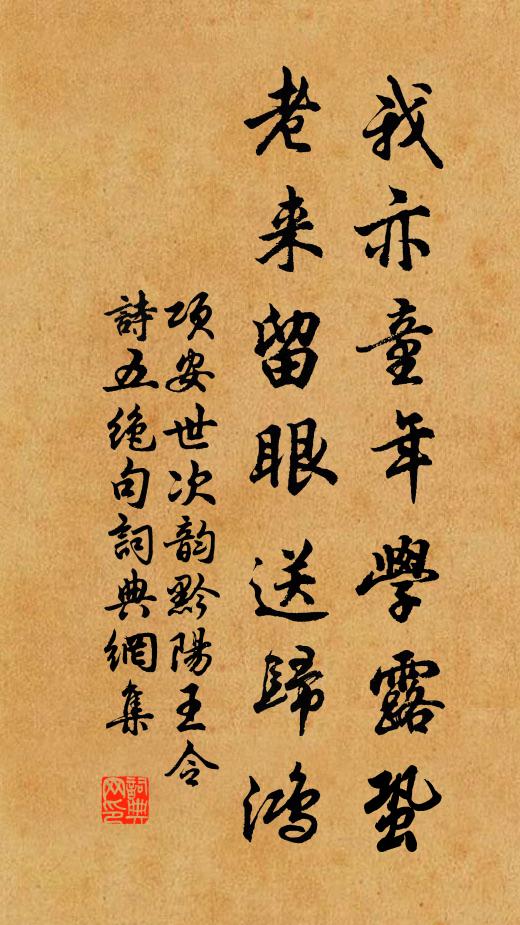 我亦童年學露蛩
老来留眼送歸鴻
項安世次韵黔陽王令
詩五絶句詞典網集
詞典网印